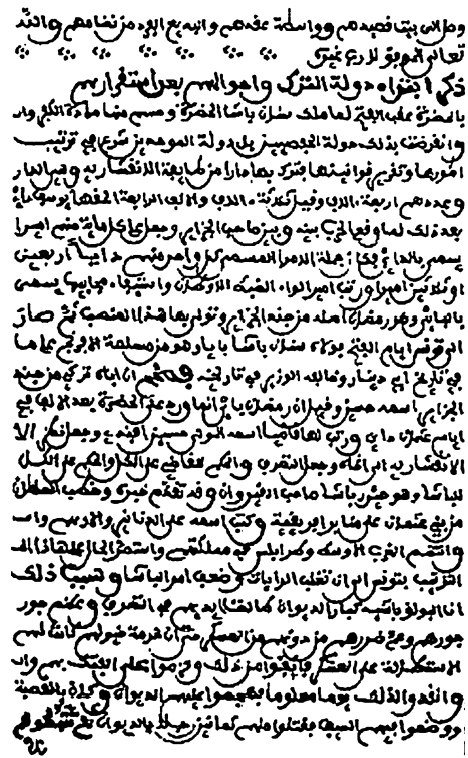 قصيدهم وواسطة عقدهم من نظامهم والله
تعالى الموفق لا رب غيره
ذكر ابتداء دولة الترك واحوالهم بعد استقرارهم
بالحضرة عقب الفتح لما ملك سنان باشا الحضرة وحسم منها مادة الكفر
وانقرضت بذلك دولة الحفصيين بل دولة الموحدين شرع في ترتيب
امورها وتقرير قوانينها فترك بها دارا من طايفة الانقشارية وقيل الدار
وعددهم اربعة الاف وقيل ثلاثة الاف والالف الرابعة الحقها يوسف داي
بعد ذلك لما وقع الحرب بينه وبين صاحب الجزاير وجعل على كل ماية منهم اميرا
يسمى بالداي جملة الامراء المسمى كل واحد منهم دايا اربعين
او ثلاثين اميرا ورتب امير الواء لضبط الاوطان واستيفاء مجابيها يسمى
بالباي وهو رمضان اصله من جند الجزاير وتولى بها هذا المنصب ثم صار
الى تونس ايام الفتح بولاه سنان باشا بايا وهو من الافرنج على ما
في تاريخ ابن دينار وخالفه الوزير في تاريخه ان اباه تركي من جند
الجزاير اسمه حسين وقيل ان رمضان باي انما ورد على الحضرة بعد الالف في
ايام عثمان داي ورتب لها قاضيا اسمه المولى حسين افندي وجعل نظر الا
الانقشارية الى اغاه وجعل التصرف والحكم على الكل والحكم على الكل
للباشا وهو حيدر باشا صاحب القيروان وقد تقدم خبره وخطب السلطان
عثمان على منابر افريقية وكتب اسمه على الدنانير والدراهم واست
وانتظم المغرب الاوسط وطرابلس في مملكتهم واستمر الحال على هذا ال
الترتيب بتونس الى ان تغلب الدايات وضعف امر الباشا وسبب ذلك
ان البولوباشية كبار الديوان ايديهم في التصرف وعظم جور
جورهم وعم ضررهم من دونهم من العسكر حتى ان خدمة خيولهم كانت لهم
الاستطالة على العسكر فانفوا من ذلك وعزموا على الفتك بهم وات
واتعدوا لذلك يوما معلوما فهجموا عليهم الديوان وكان بالقصبة
ووضعوا فيهم السيف فقتلوا منهم بالديوان ثم تتبعوهم